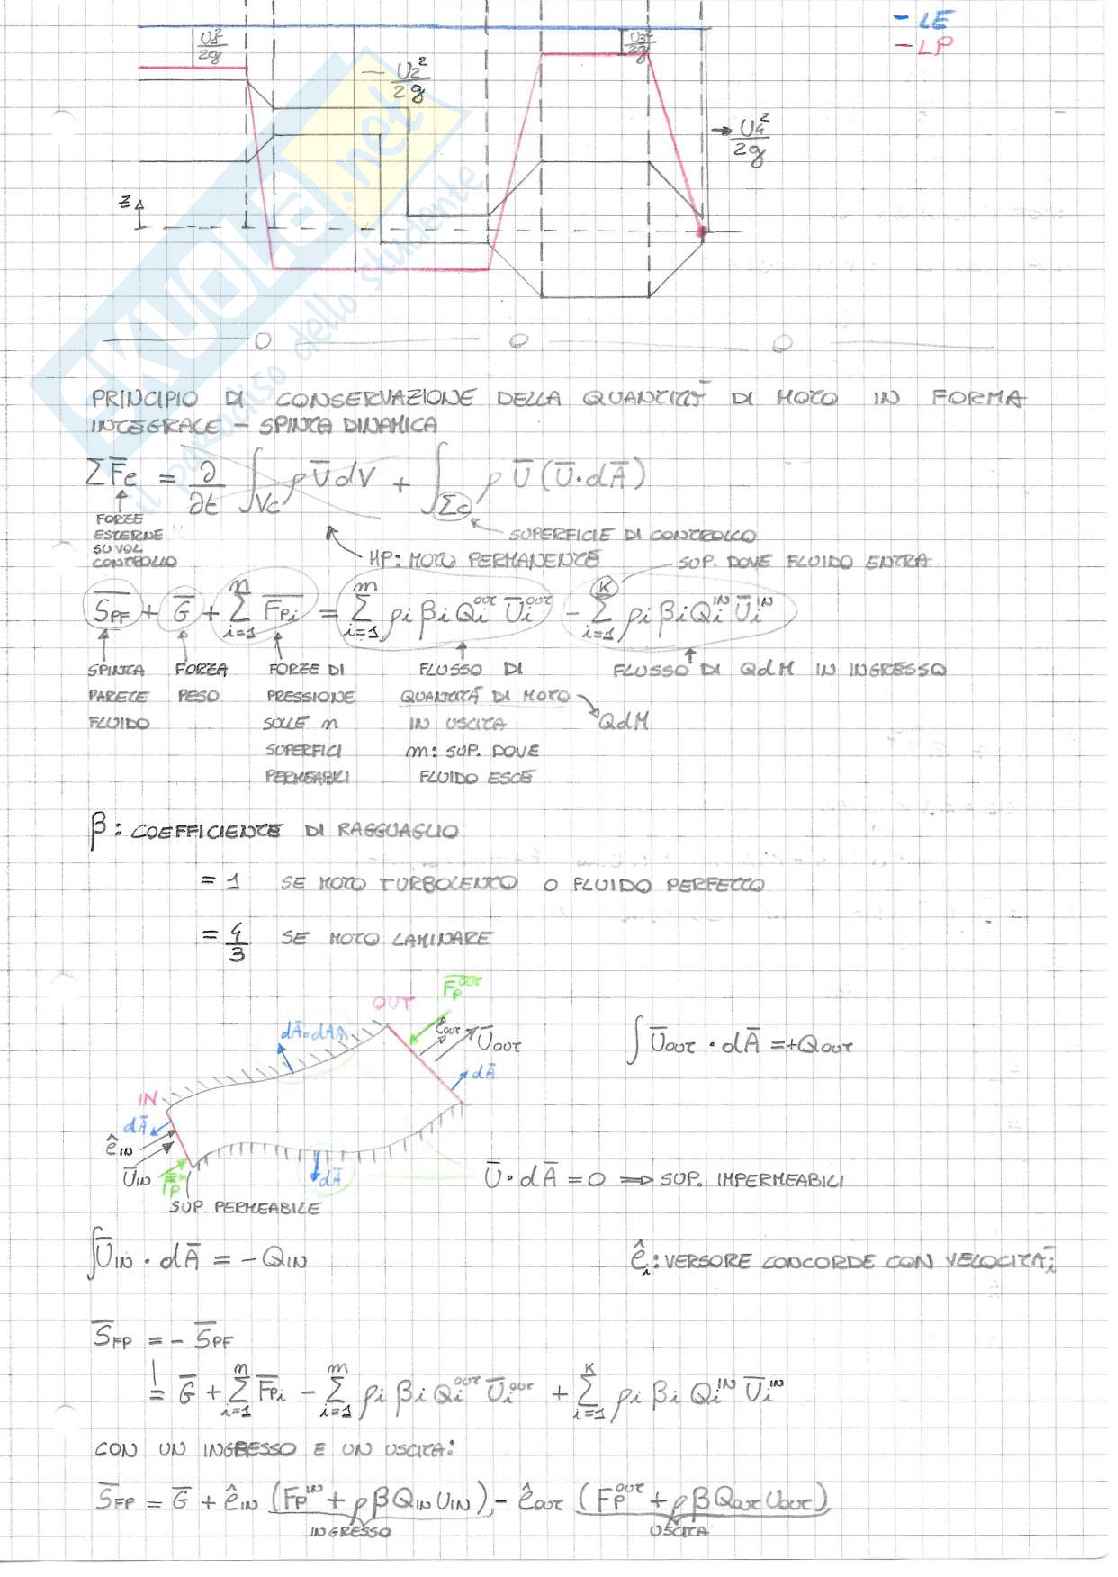 - LE
- LP
U₁²/2g
U₂²/2g
U₃²/2g
→ U₄²/2g
z
SKUOLA.net
il paradiso dello studente
PRINCIPIO DI CONSERVAZIONE DELLA QUANTITÀ DI MOTO IN FORMA
INTEGRALE - SPINTA DINAMICA
ΣF̅e = ∂/∂t ∫Vc ρ U̅ dV + ∫Σc ρ U̅ (U̅·dA̅)
FORZE
ESTERNE
SU VOL
CONTROLLO
SUPERFICIE DI CONTROLLO
HP: MOTO PERMANENTE
SUP. DOVE FLUIDO ENTRA
S̅PF + G̅ + Σ(i=1→n) F̅Pi = Σ(i=1→m) ρi βi Qi^OUT U̅i^OUT - Σ(i=1→K) ρi βi Qi^IN U̅i^IN
SPINTA PARETE FLUIDO
FORZA PESO
FORZE DI PRESSIONE SULLE n SUPERFICI PERMEABILI
FLUSSO DI QUANTITÀ DI MOTO IN USCITA
QdM
m: SUP. DOVE FLUIDO ESCE
FLUSSO DI QdM IN INGRESSO
β: COEFFICIENTE DI RAGGUAGLIO
= 1 SE MOTO TURBOLENTO O FLUIDO PERFETTO
= 4/3 SE MOTO LAMINARE
OUT
F̅P^OUT
dA̅=dAn̂
êOUT
U̅OUT
dA̅
∫ U̅OUT · dA̅ = +QOUT
IN
dA̅
êIN
U̅IN
F̅P^IN
dA̅
U̅ · dA̅ = 0 ⟹ SUP. IMPERMEABILI
SUP PERMEABILE
∫U̅IN · dA̅ = - QIN
êi: VERSORE CONCORDE CON VELOCITÀi
S̅FP = - S̅PF
= G̅ + Σ(i=1→n) F̅Pi - Σ(i=1→m) ρi βi Qi^OUT U̅i^OUT + Σ(i=1→K) ρi βi Qi^IN U̅i^IN
CON UN INGRESSO E UN USCITA:
S̅FP = G̅ + êIN (FP^IN + ρβQIN UIN) - êOUT (FP^OUT + ρβQOUT UOUT)
INGRESSO
USCITA